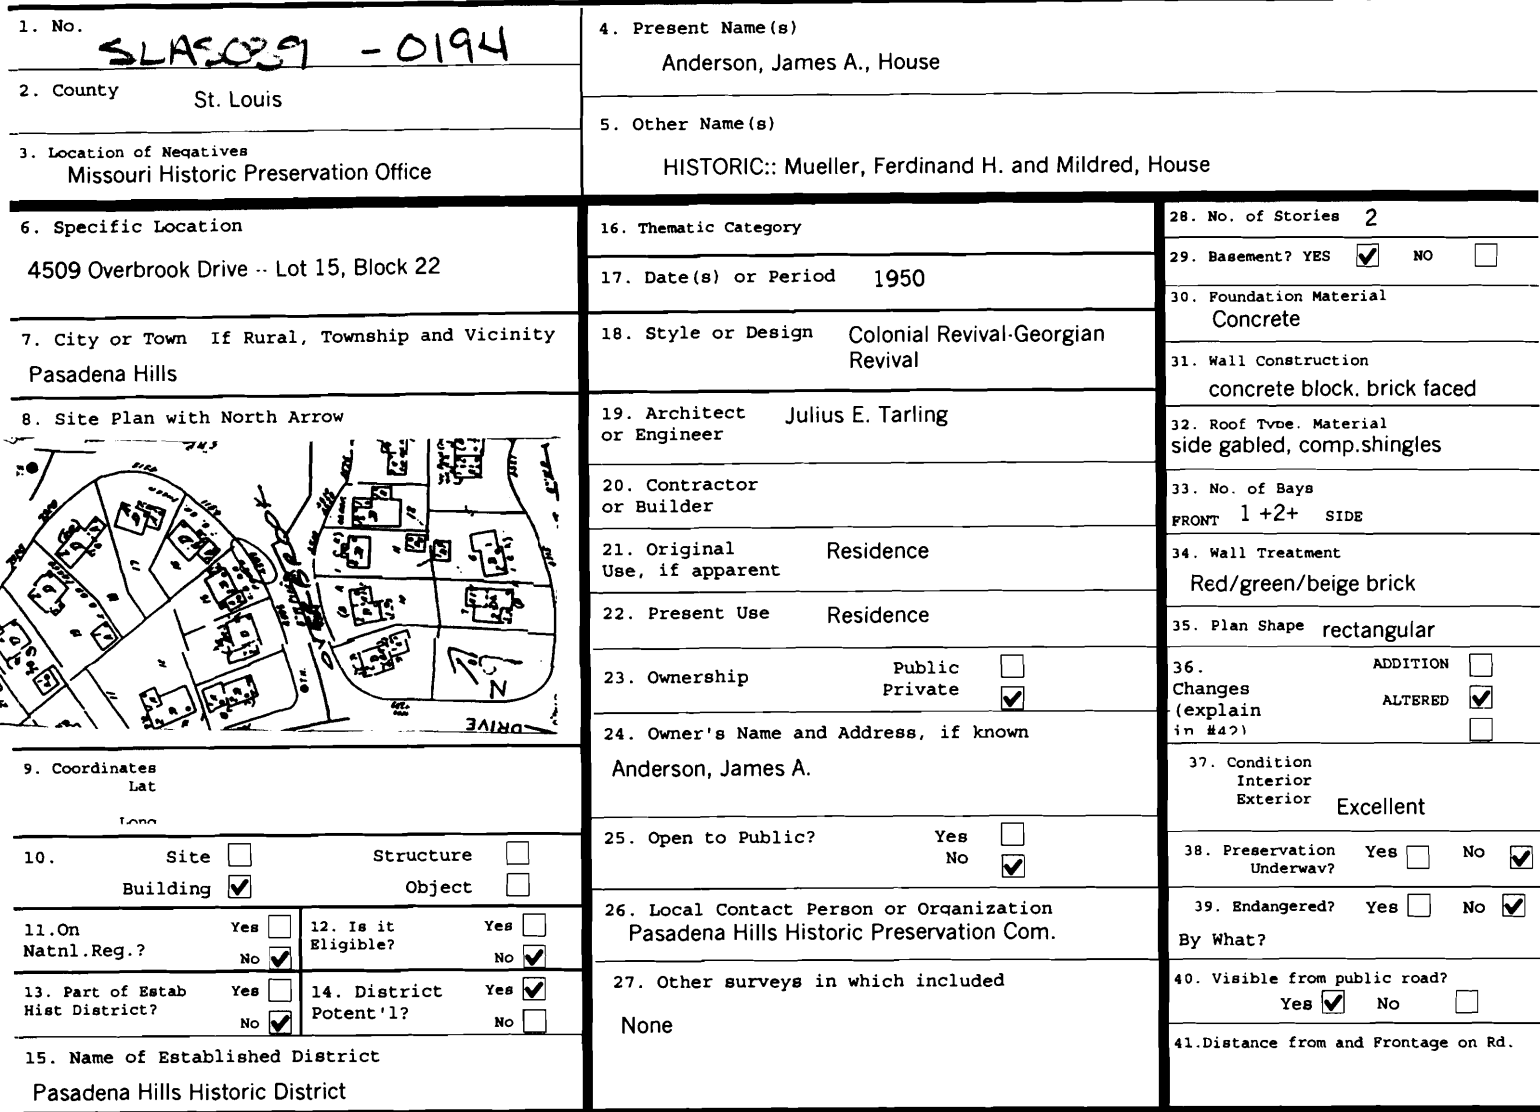 1. No.
SLAS039 -0194
2. County St. Louis
3. Location of Negatives
Missouri Historic Preservation Office
4. Present Name(s)
Anderson, James A., House
5. Other Name(s)
HISTORIC:: Mueller, Ferdinand H. and Mildred, House
6. Specific Location
4509 Overbrook Drive -- Lot 15, Block 22
7. City or Town If Rural, Township and Vicinity
Pasadena Hills
8. Site Plan with North Arrow
N
DRIVE
9. Coordinates
Lat
Long
10. Site Structure
Building Object
11.On Yes
Natnl.Reg.?
No
12. Is it Yes
Eligible?
No
13. Part of Estab Yes
Hist District?
No
14. District Yes
Potent'l?
No
15. Name of Established District
Pasadena Hills Historic District
16. Thematic Category
17. Date(s) or Period 1950
18. Style or Design Colonial Revival-Georgian
Revival
19. Architect Julius E. Tarling
or Engineer
20. Contractor
or Builder
21. Original Residence
Use, if apparent
22. Present Use Residence
23. Ownership Public
Private
24. Owner's Name and Address, if known
Anderson, James A.
25. Open to Public? Yes
No
26. Local Contact Person or Organization
Pasadena Hills Historic Preservation Com.
27. Other surveys in which included
None
28. No. of Stories 2
29. Basement? YES NO
30. Foundation Material
Concrete
31. Wall Construction
concrete block. brick faced
32. Roof Type. Material
side gabled, comp.shingles
33. No. of Bays
FRONT 1 +2+ SIDE
34. Wall Treatment
Red/green/beige brick
35. Plan Shape rectangular
36. ADDITION
Changes ALTERED
(explain
in #42)
37. Condition
Interior
Exterior Excellent
38. Preservation Yes No
Underway?
39. Endangered? Yes No
By What?
40. Visible from public road?
Yes No
41.Distance from and Frontage on Rd.